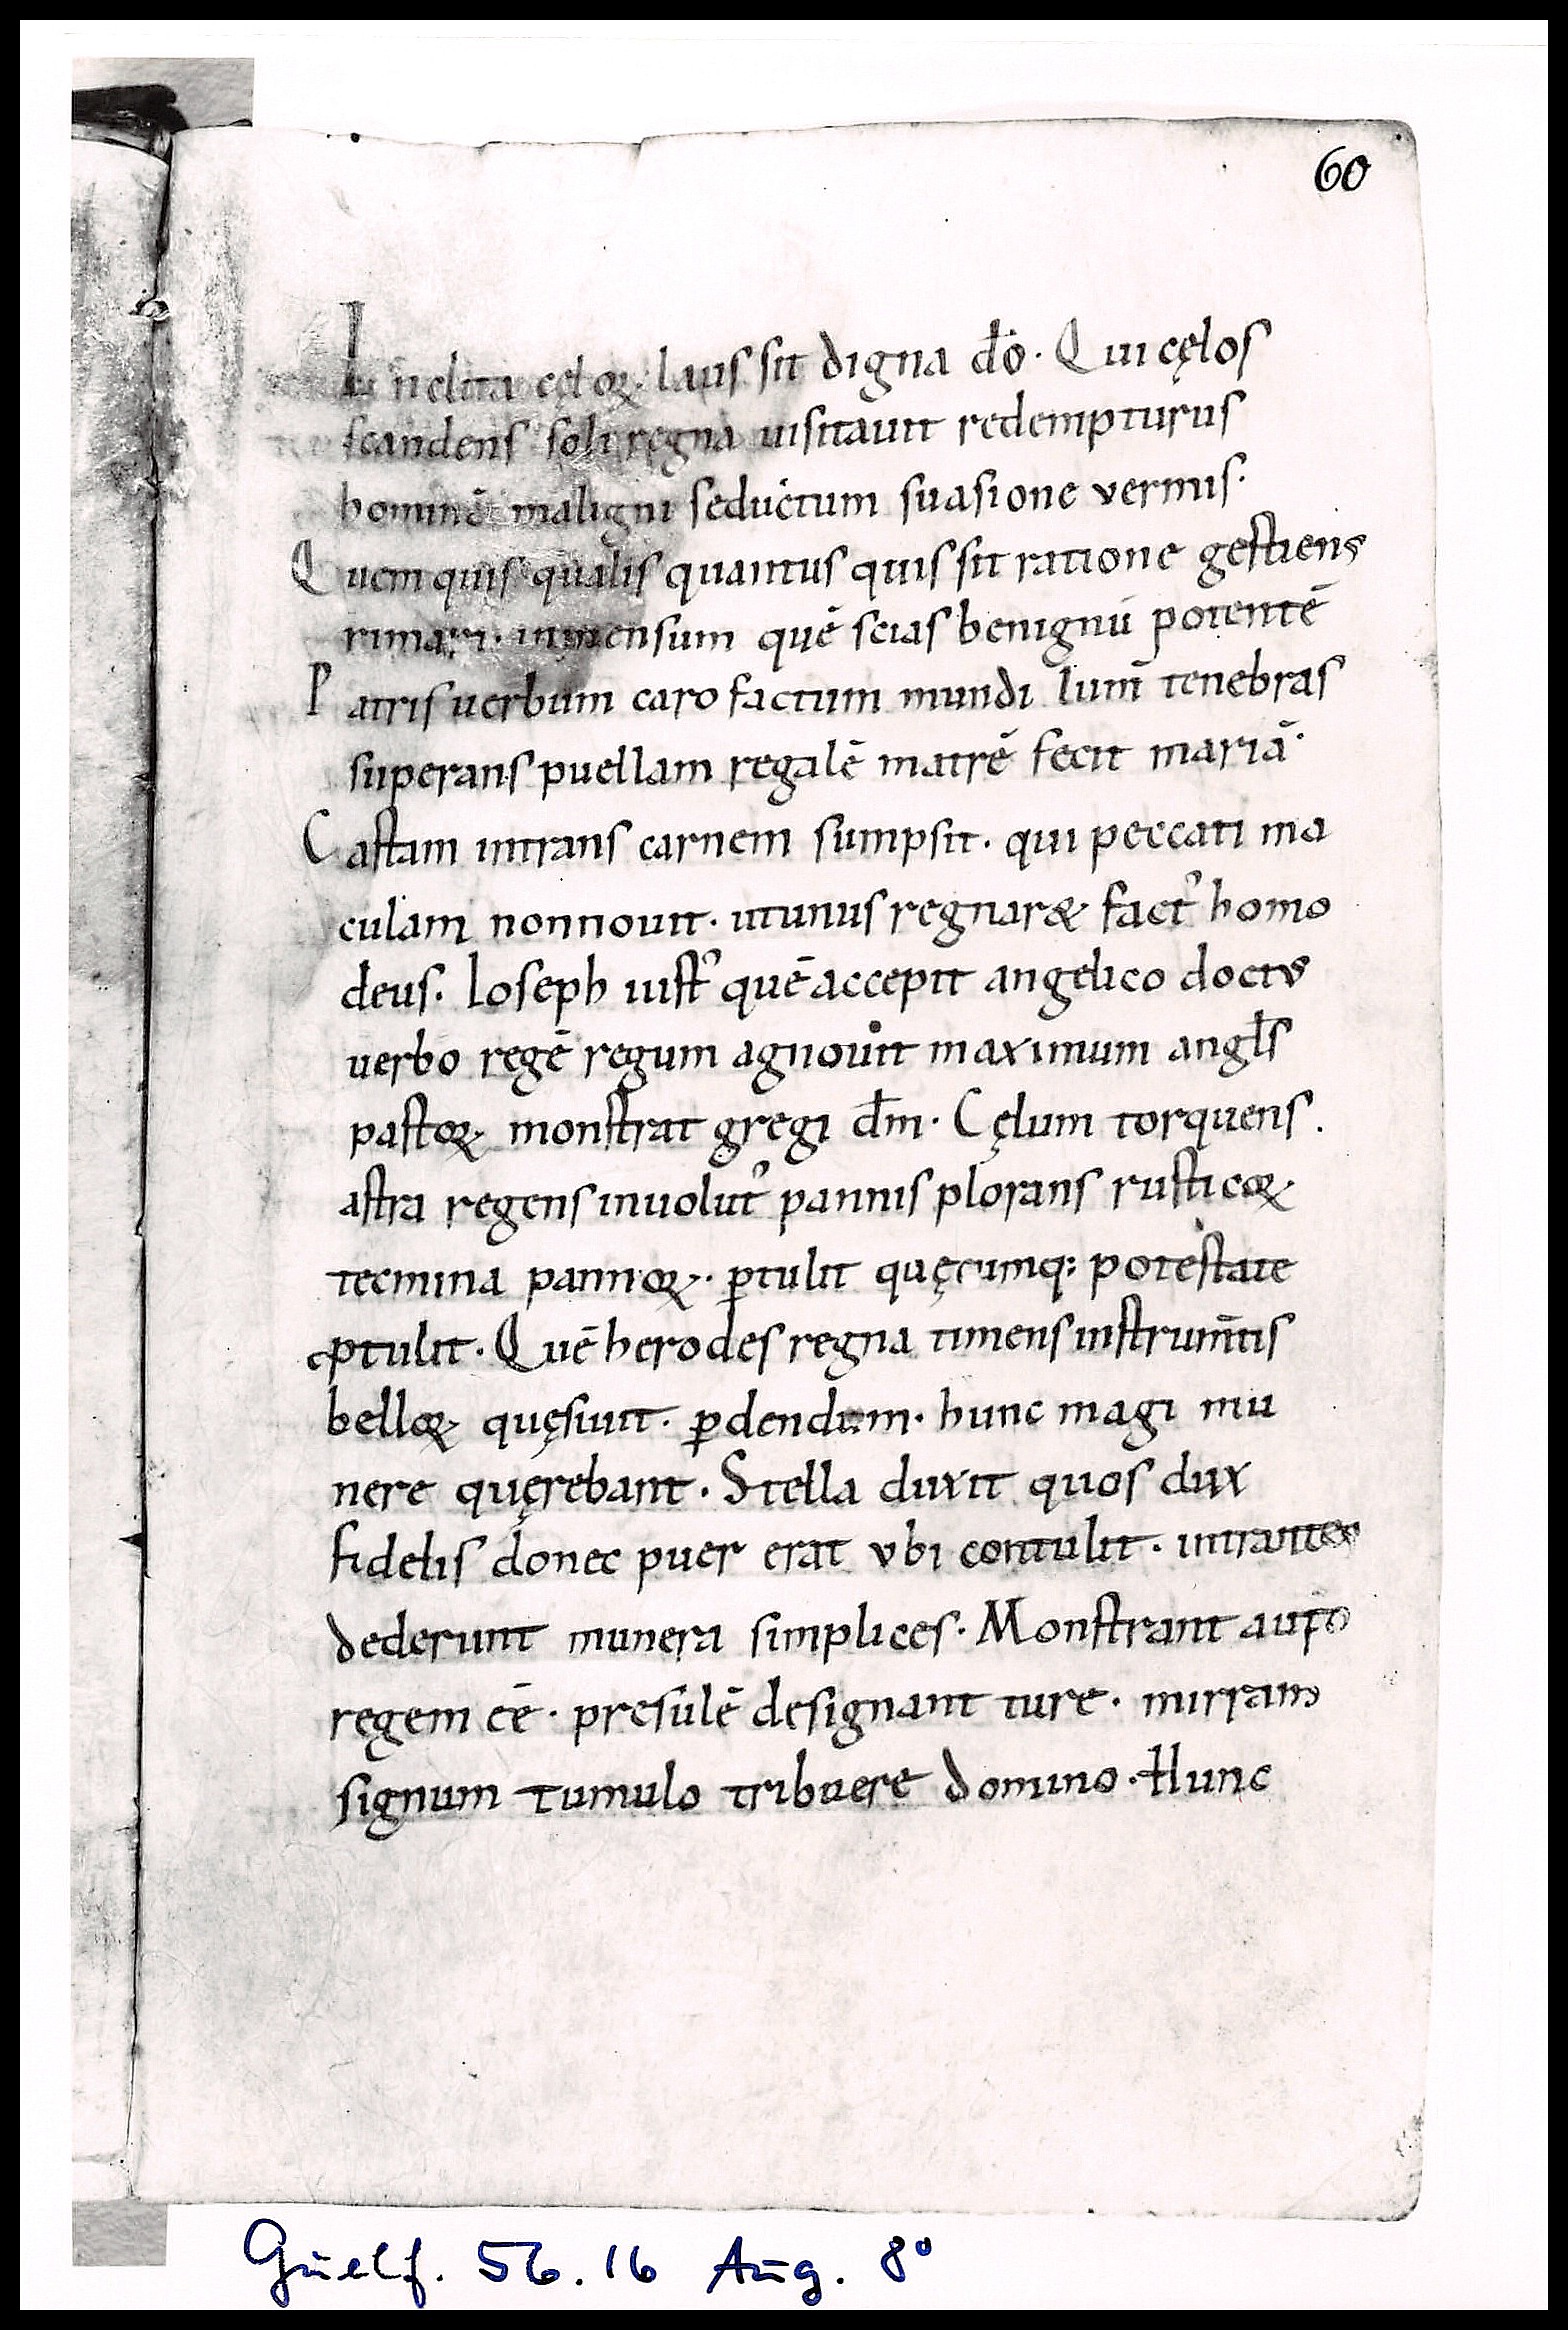 60
Inclita cęloꝝ laus sit digna dō. Qui cęlos
scandens soli regna uisitauit redempturus
hominē maligni seductum suasione vermis.
Quem quis qualis quantus quis sit ratione gestiens
rimari. inmensum quē scias benignū potentē
Patris uerbum caro factum mundi lum̄ tenebras
superans puellam regalē matrē fecit mariā.
Castam intrans carnem sumpsit. qui peccati ma
culam nonnouit. utunus regnar& fact᾽ homo
deus. Ioseph iust᾽ quē accepit angelico doctus
uerbo regē regum agnouit maximum angl̄s
pastoꝝ monstrat gregi dm̄. Cęlum torquens.
astra regens inuolut᾽ pannis plorans rusticoꝝ
tecmina pannoꝝ. ꝑtulit quęcumq: potestate
ꝓtulit. Quē herodes regna timens instrum̄tis
belloꝝ quęsiuit. ꝑdendum. hunc magi mu
nere quęrebant. Stella duxit quos dux
fidelis donec puer erat vbi contulit. intrantes
dederunt munera simplices. Monstrant auro
regem eē. presulē designant ture. mirram
signum tumulo tribuere domino. Hunc
Guelf. 56.16 Aug. 8°